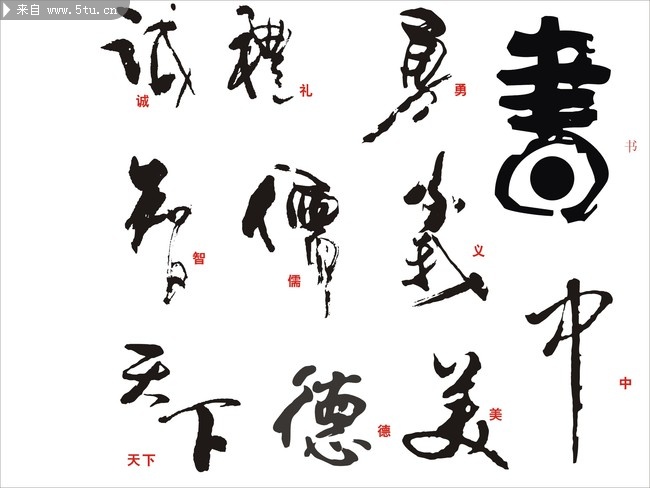 来自 www.5tu.cn
誠
诚
禮
礼
勇
勇
書
书
智
智
儒
儒
義
义
中
中
天下
天下
德
德
美
美